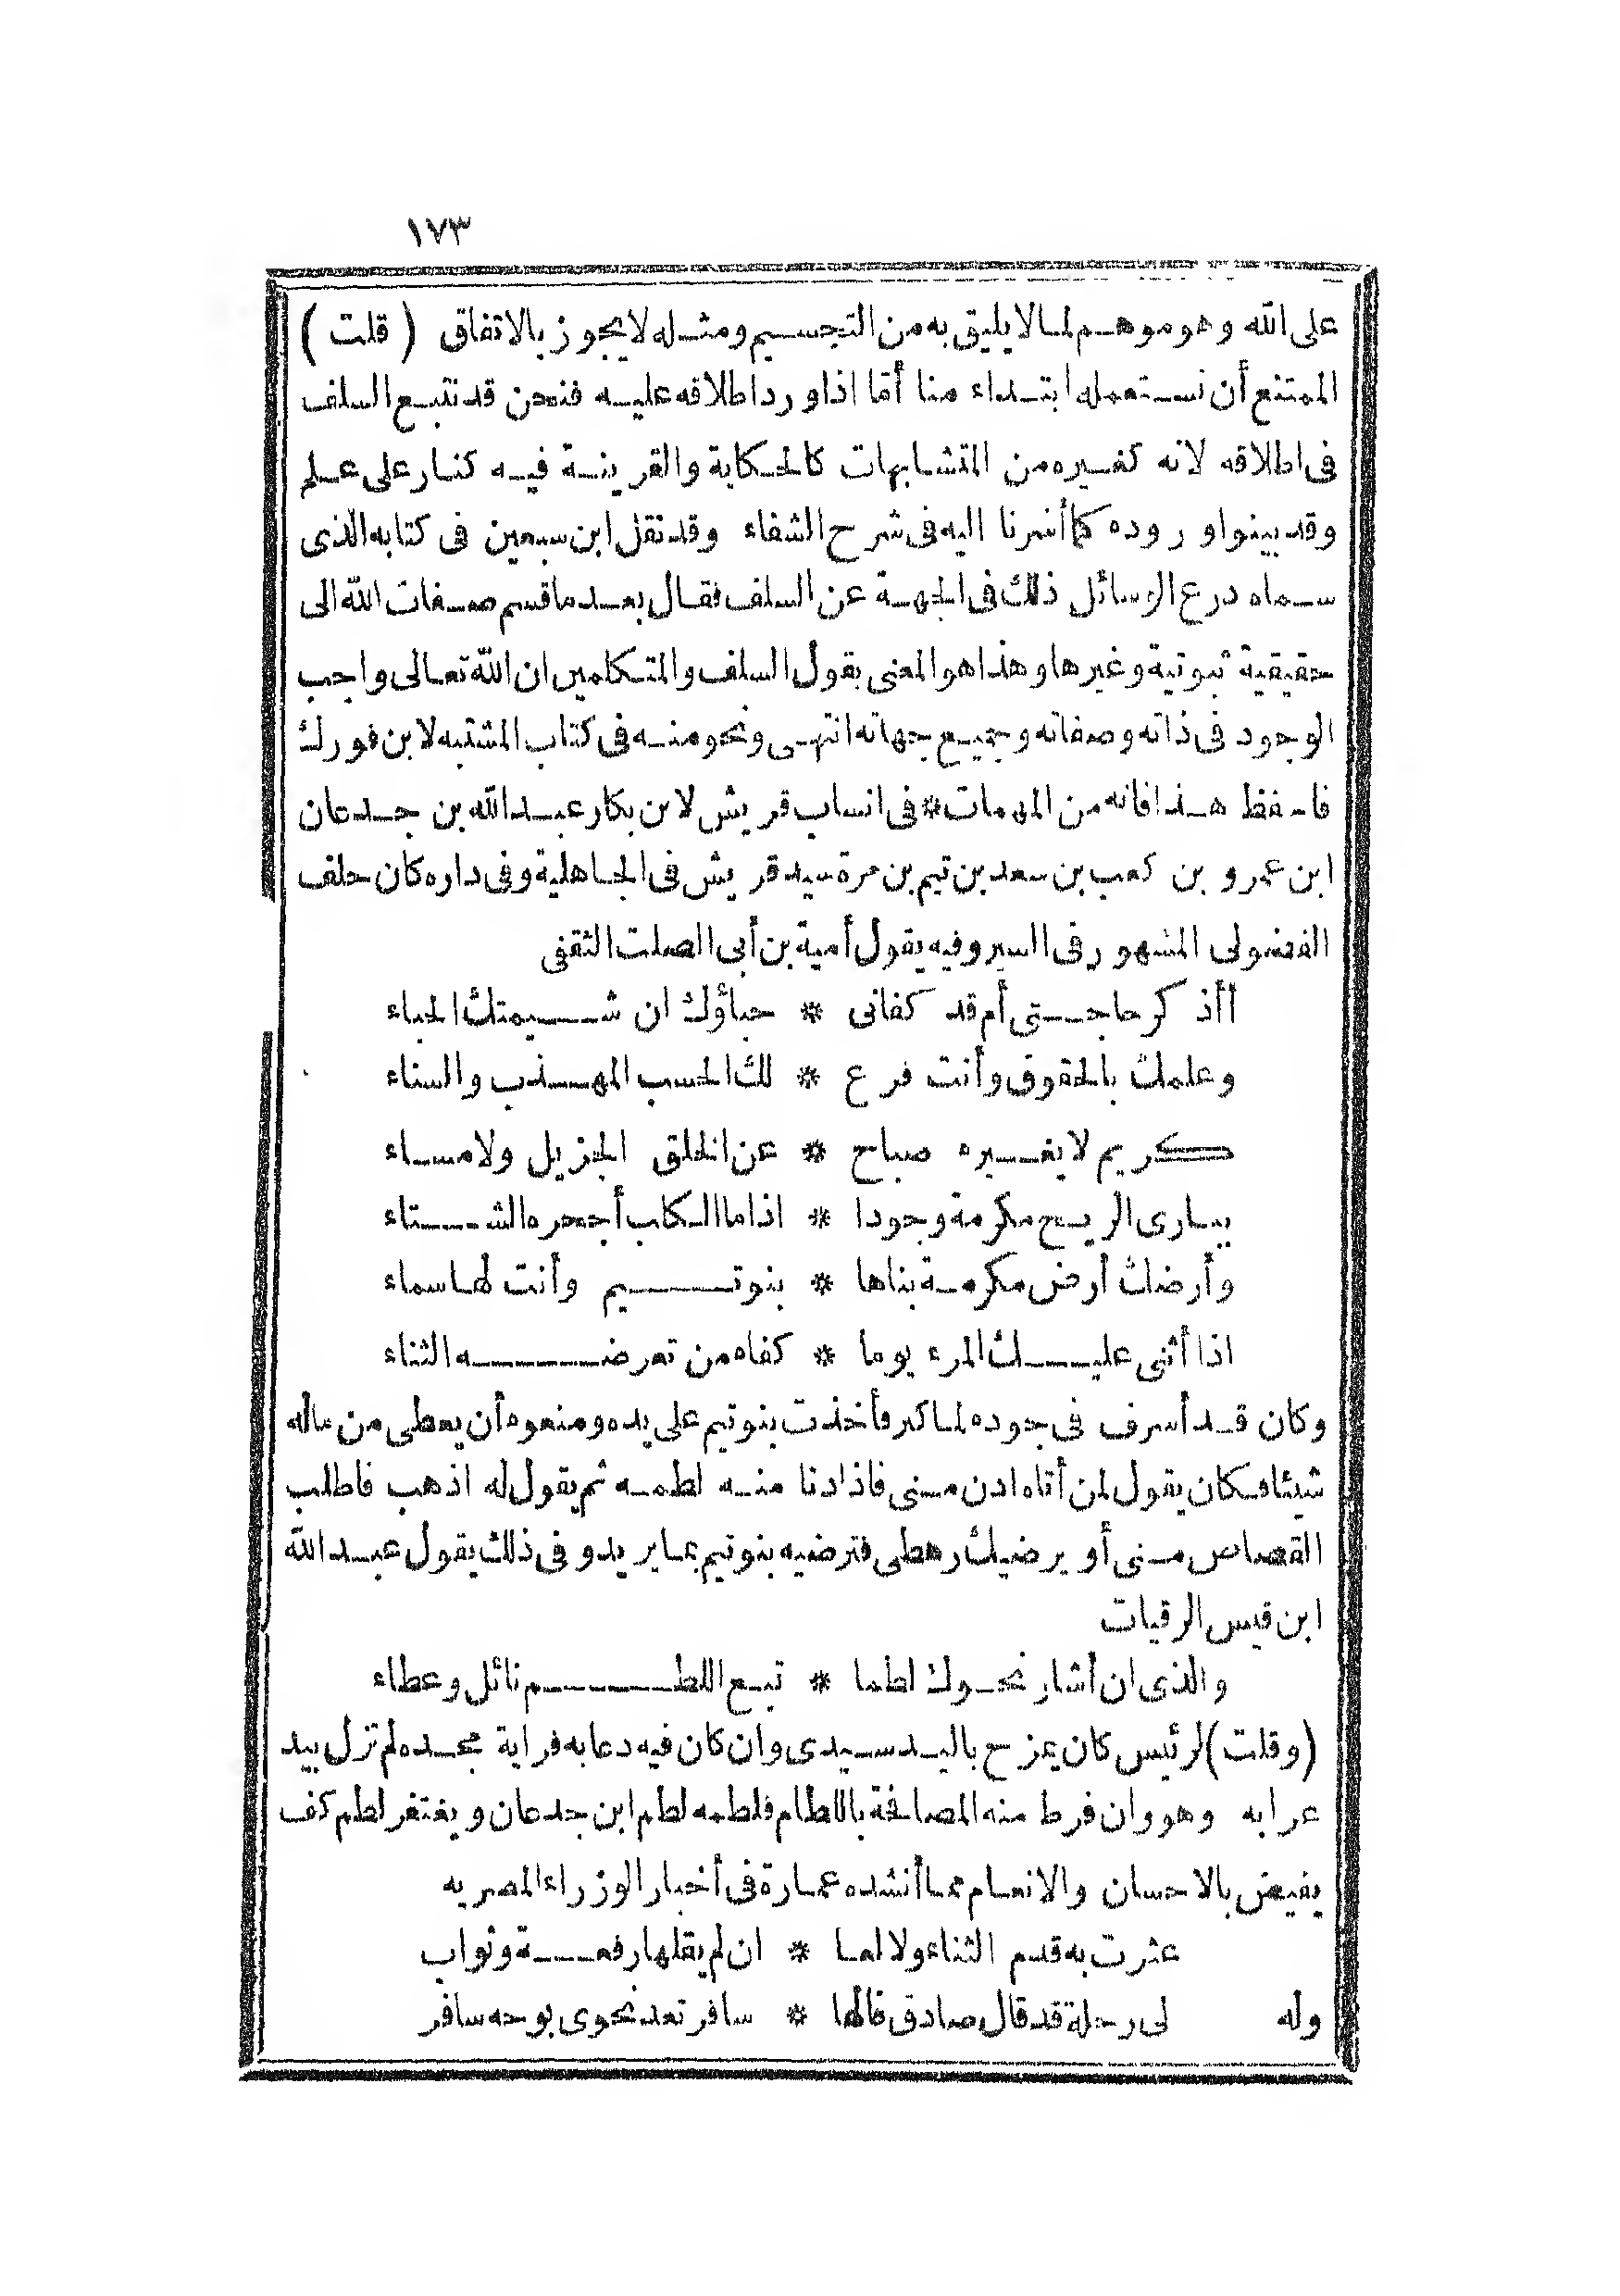 ١٧٣
على الله وهو موهم لما لا يليق به من التجسيم ومثله لا يجوز بالاتفاق (قلت)
الممتنع أن نستعمله ابتداء منا أمّا اذا ورد اطلاقه عليه فنحن قد نتبع السلف
فى اطلاقه لانه كغيره من المتشابهات كالحكاية والقرينة فيه كنار على علم
وقد بينوا وروده كما أشرنا اليه فى شرح الشفاء وقد نقل ابن سبعين فى كتابه الذى
سماه درع الرسائل ذلك فى الجهة عن السلف فقال بعد ما قسم صفات الله الى
حقيقية ثبوتية وغيرها وهذا هو المعنى بقول السلف والمتكلمين ان الله تعالى واجب
الوجود فى ذاته وصفاته وجميع جهاته انتهى ونحو منه فى كتاب المشتبه لابن فورك
فاحفظ هذا فانه من المهمات * فى انساب قريش لابن بكار عبد الله بن جدعان
ابن عمرو بن كعب بن سعد بن تيم بن مرة سيد قريش فى الجاهلية وفى داره كان حلف
الفضولى المشهور فى السير وفيه يقول أمية بن أبى الصلت الثقفى
أأذكر حاجتى أم قد كفانى * حباؤك ان شيمتك الحباء
وعلمك بالحقوق وأنت فرع * لك الحسب المهذب والسناء
كريم لا يغيره صباح * عن الخلق الجزيل ولا مساء
يبارى الريح مكرمة وجودا * اذا ما الكلب أجحره الشتاء
وأرضك أرض مكرمة بناها * بنو تيم وأنت لها سماء
اذا أثنى عليك المرء يوما * كفاه من تعرضه الثناء
وكان قد أسرف فى جوده لما كبر فأخذت بنو تيم على يده ومنعوه أن يعطى من ماله
شيئا فكان يقول لمن أتاه ادن منى فاذا دنا منه لطمه ثم يقول له اذهب فاطلب
القصاص منى أو يرضيك رهطى فترضيه بنو تيم بما يريد وفى ذلك يقول عبد الله
ابن قيس الرقيات
والذى ان أشار نحوك لطما * تبع اللطم نائل وعطاء
(وقلت) لرئيس كان يمزح باليد سيدى وان كان فيه دعابه فراية مجده لم تزل بيد
عرابه وهو وان فرط منه المصافحة باللطام فلطمه لطم ابن جدعان ويغتفر لطم كف
يفيض بالاحسان والانعام مما أنشده عمارة فى أخبار الوزراء المصريه
عثرت به قدم الثناء ولا لعا * ان لم يقلها رفعة وثواب
وله لى رحلة قد قال صادق فالها * سافر تعد نحوى بوجه سافر